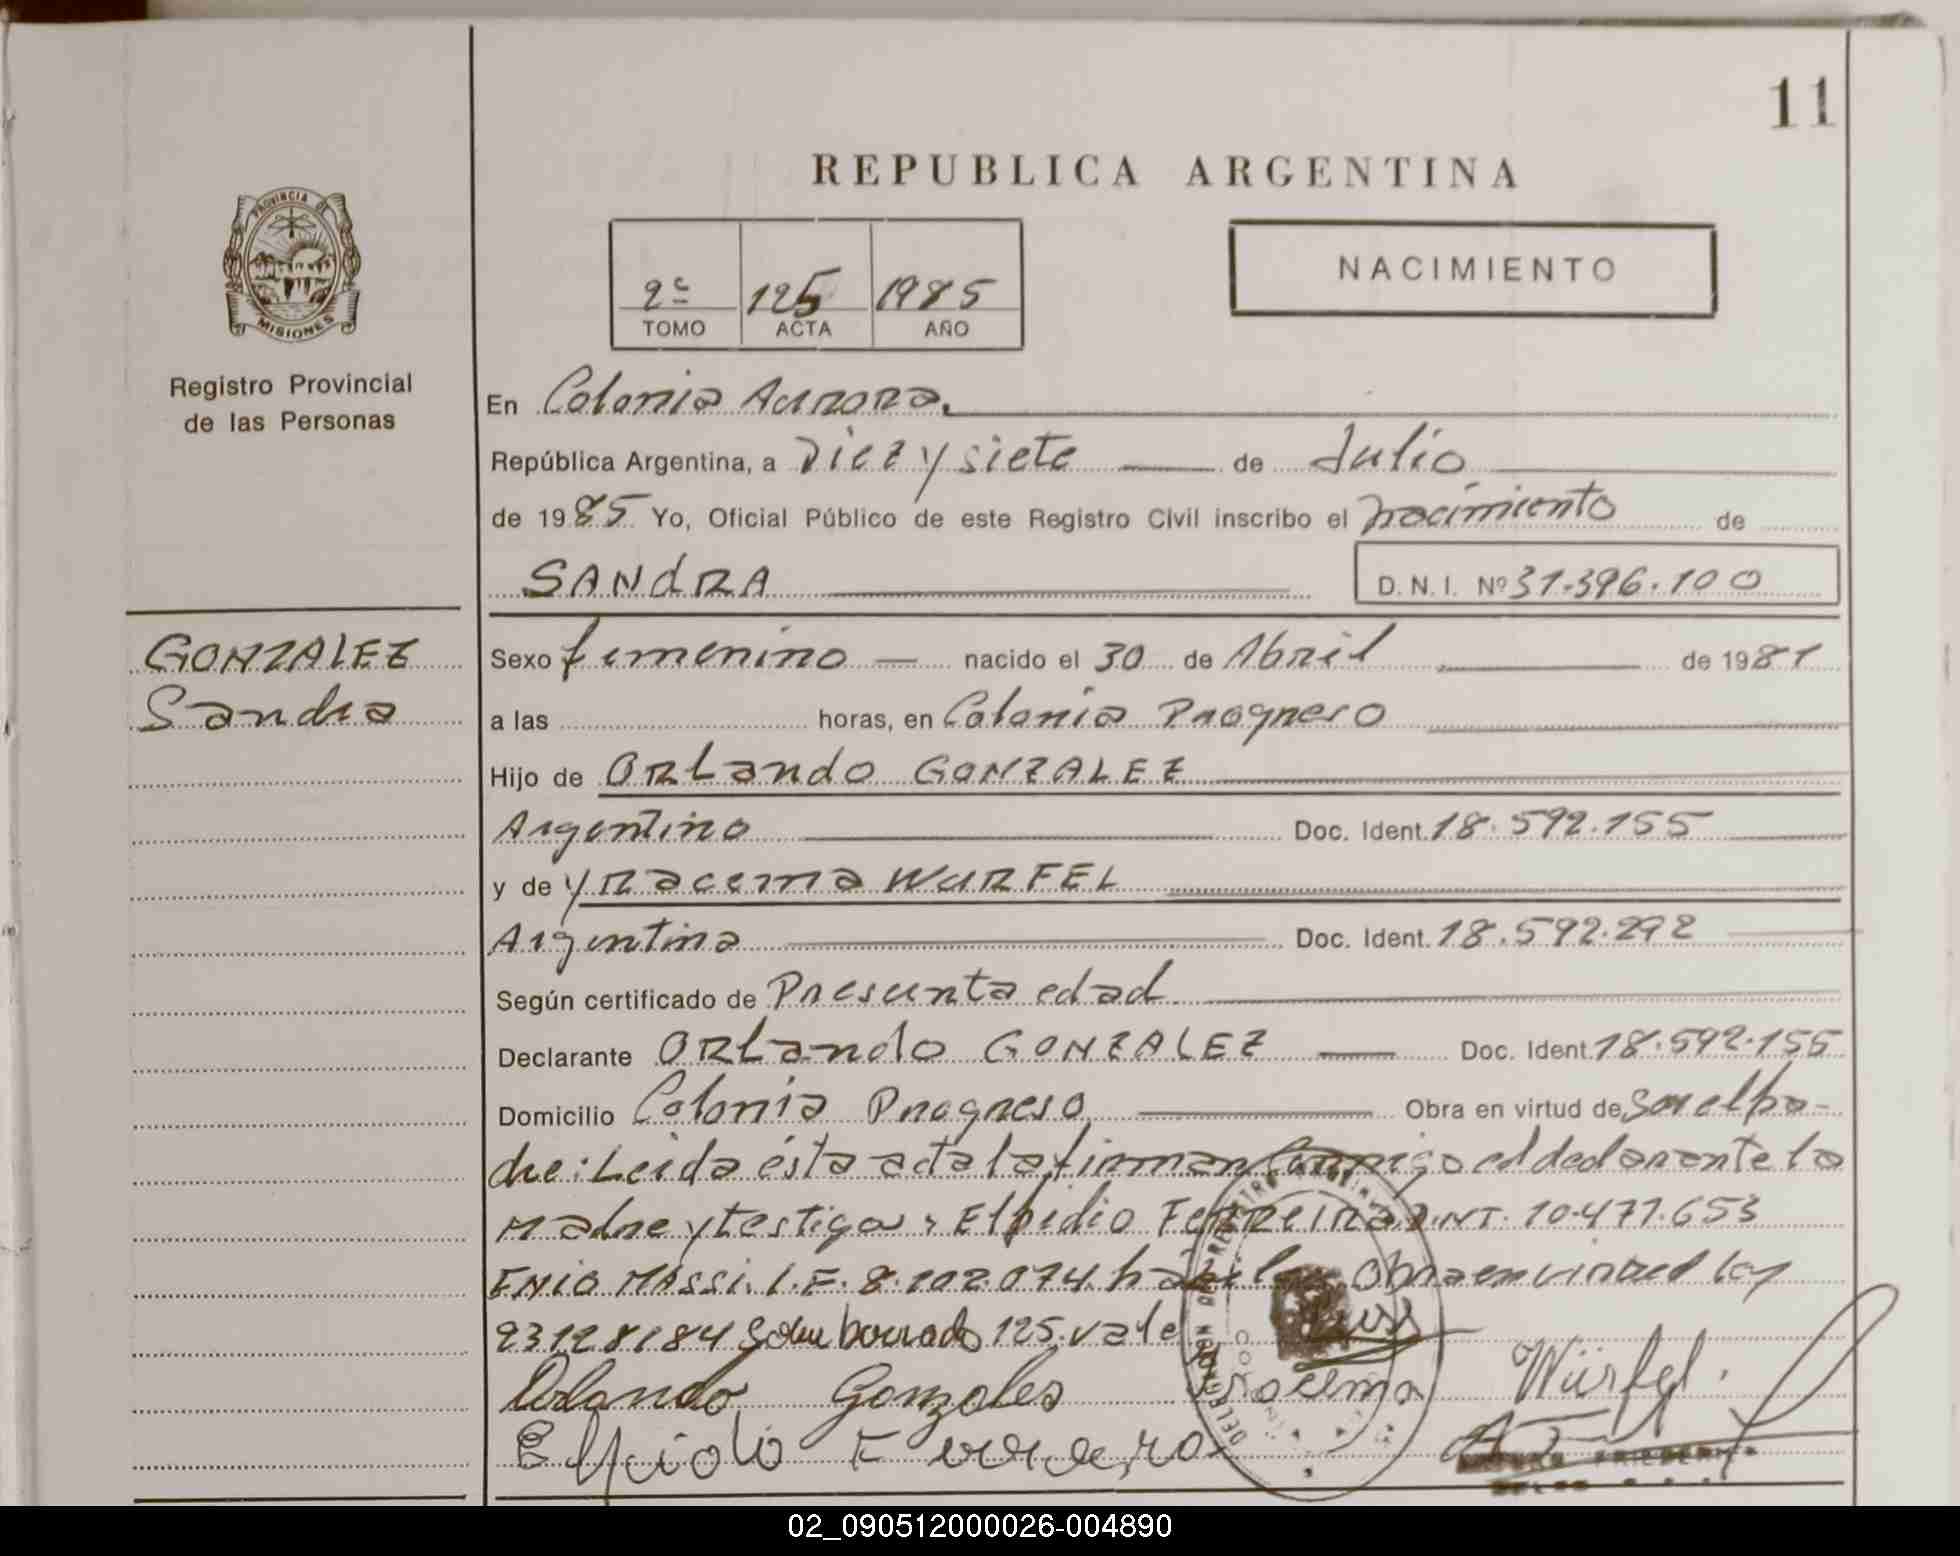 11
REPUBLICA ARGENTINA
PROVINCIA DE
MISIONES
Registro Provincial
de las Personas
2º 125 1985
TOMO ACTA AÑO
NACIMIENTO
En Colonia Aurora.
República Argentina, a Diez y siete de Julio
de 1985 Yo, Oficial Público de este Registro Civil inscribo el nacimiento de
SANdRA D.N.I. Nº 31.396.100
GONZALEZ
Sandra
Sexo femenino nacido el 30 de Abril de 1981
a las horas, en Colonia Progreso
Hijo de ORLando GONZALEZ
Argentino Doc. Ident. 18.592.155
y de YRacema WURFEL
Argentina Doc. Ident. 18.592.292
Según certificado de Presunta edad
Declarante ORLando GONZALEZ Doc. Ident. 18.592.155
Domicilio Colonia Progreso Obra en virtud de Ser el pa-
dre: Leida ésta acta la firman Conmigo el declarante la
Madre y testigos: Elpidio FERREIRA D.N.I. 10.477.653
ENIO MASSI. L.E. 8.102.074. Obra en virtud ley
23128/84 Sobre borrado 125. vale
Orlando Gonzales Iracema Würfel.
Elpidio Ferreira
02_090512000026-004890